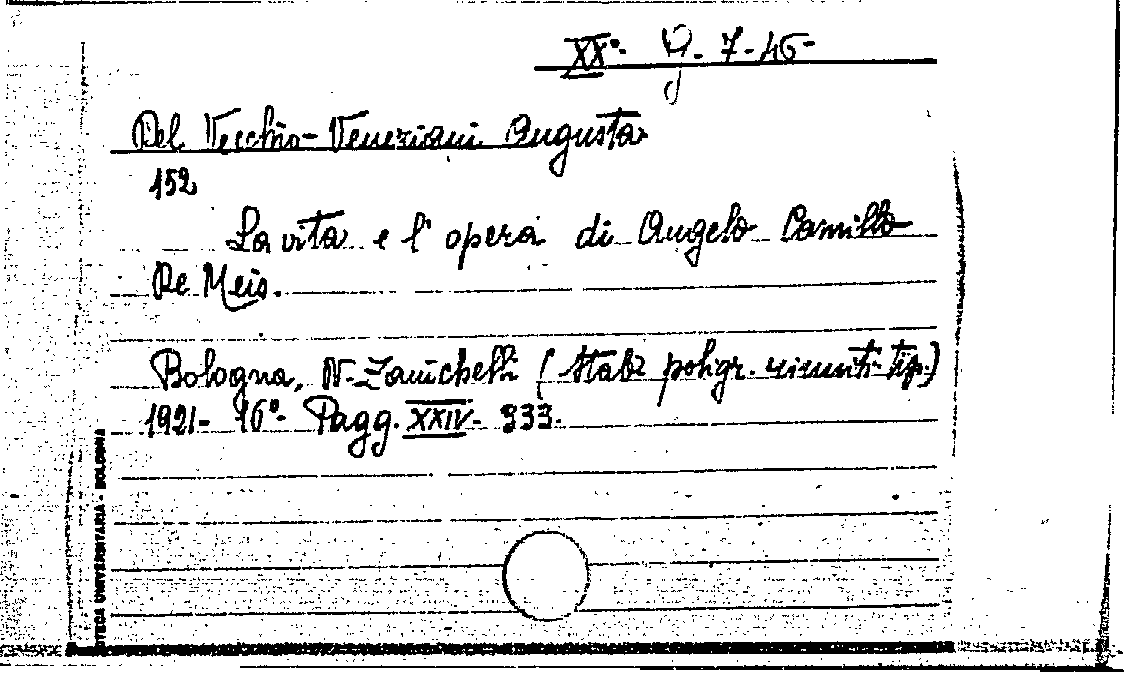 XXº. G. 7-46-
Del Vecchio-Veneziani Augusta
152
La vita e l'opera di Angelo Camillo
De Meis.
Bologna, N. Zanichelli (Stab. poligr. riuniti tip.)
1921- 16º- Pagg. XXIV- 333.
TECA UNIVERSITARIA - BOLOGNA